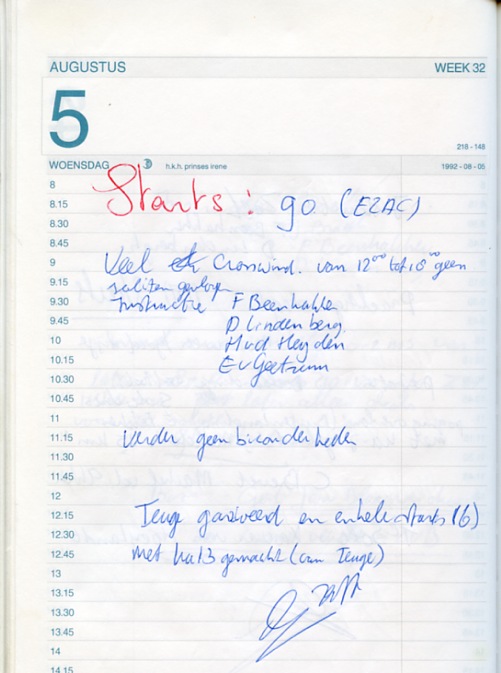 AUGUSTUS WEEK 32
5
218 - 148
WOENSDAG h.k.h. prinses irene 1992 - 08 - 05
8
8.15 Starts: 90 (EZAC)
8.30
8.45
9 Veel Crosswind. van 12⁰⁰ tot 18⁰⁰ geen
9.15
9.30 Instructie F Beenhakker
9.45 D Lindenberg.
10 H vd Heyden
10.15 E v Geetruin
10.30
10.45
11
11.15 Verder geen bizonderheden
11.30
11.45
12
12.15 Teuge gearriveerd en enkele starts (6)
12.30
12.45 met ka 13 gemacht (van Teuge)
13
13.15
13.30
13.45
14
14.15